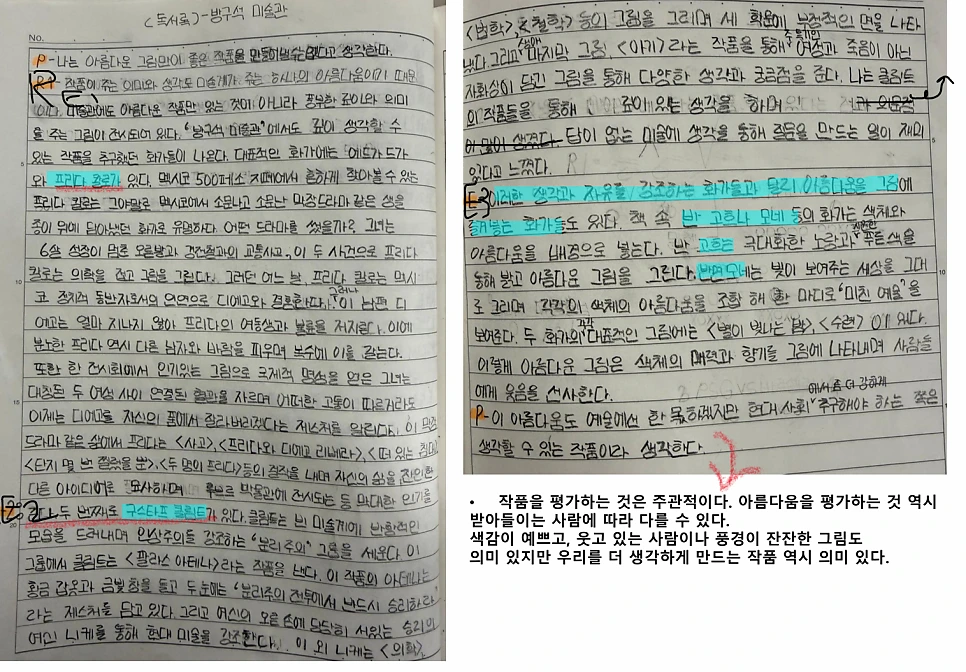 <독서록> - 방구석 미술관
No.
P - 나는 아름다운 그림만이 좋은 작품을 만들어낼수 없다고 생각한다.
R1 작품이 주는 의미와 생각도 미술계가 주는 하나의 아름다움이기 때문
이다. E1 미술관에도 아름다운 작품만 있는 것이 아니라 풍부한 깊이와 의미
을 주는 그림이 전시되어 있다. "방구석 미술관"에서도 깊이 생각할 수
있는 작품을 추구했던 화가들이 나온다. 대표적인 화가에는 에드가 드가
와 프리다 칼로가 있다. 멕시코 500페소 지폐에서 흔하게 찾아볼 수 있는
프리다 칼로는 그야말로 멕시코에서 소문나고 소문난 막장드라마 같은 생을
종이 위에 담아냈던 화가로 유명하다. 어떤 드라마를 썼을까? 그녀는
6살 성장이 멈춘 오른발과 강전철과의 교통사고, 이 두 사건으로 프리다
칼로는 의학을 접고 그림을 그린다. 그러던 어느 날, 프리다 칼로는 멕시
코 정치적 동반자로서의 인연으로 디에고와 결혼한다. 그러나 이 남편 디
에고는 얼마 지나지 않아 프리다의 여동생과 불륜을 저지른다. 이에
분노한 프리다 역시 다른 남자와 바람을 피우며 복수에 이를 간다.
또한 한 전시회에서 인기있는 그림으로 국제적 명성을 얻은 그녀는
대칭된 두 여성 사이 연결된 혈관을 자르며 어떠한 고통이 따르더라도
이제는 디에고를 자신의 품에서 잘라버리겠다는 제스처를 알린다. 이 막장
드라마 같은 삶에서 프리다는 <사고>, <프리다와 디에고 리베라>, <떠 있는 침대>
<단지 몇 번 찔렀을 뿐>, <두 명의 프리다> 등의 걸작을 내며 자신의 삶을 잔인한
다른 아이디어로 묘사하며 루브르 박물관에 전시되는 등 막대한 인기를
E2 끈다. 두 번째로 구스타프 클림트가 있다. 클림트는 빈 미술계에 반항적인
모습을 드러내며 인상주의를 강조하는 "분리주의" 그룹을 세운다. 이
그룹에서 클림트는 <팔라스 아테나>라는 작품을 낸다. 이 작품의 아테나는
황금 갑옷과 금빛 창을 들고 두 눈에는 "분리주의 전투에서 반드시 승리하라"
라는 제스처를 담고 있다. 그리고 여신의 오른 손에 당당히 서있는 승리의
여신 니케를 통해 현대 미술을 강조한다. 이 외 니케는 <의학>,
<법학>, <철학> 등의 그림을 그리며 세 학문에 부정적인 면을 나타
냈다. 그리고 마지막 그림, <아기>라는 작품을 통해 여성과 죽음이 아닌
자화상이 담긴 그림을 통해 다양한 생각과 궁금점을 준다. 나는 클림트
의 작품들을 통해 깊이 있는 생각을 하며
이 많이 생겼다. 답이 없는 미술에 생각을 통해 질문을 만드는 일이 재미
있다고 느꼈다.
E3 이러한 생각과 자유를 강조하는 화가들과 달리 아름다운을 그림에
불어넣는 화가들도 있다. 책 속 반 고흐나 모네 등의 화가는 색채와
아름다움을 배경으로 넣는다. 반 고흐는 극대화한 노랑과 푸른 색을
통해 밝고 아름다운 그림을 그린다. 반면 모네는 빛이 보여주는 세상을 그대
로 그리며 각각의 색채의 아름다움을 조합 해 한 마디로 "미친 예술"을
보여준다. 두 화가의 각각 대표적인 그림에는 <별이 빛나는 밤>, <수련> 이 있다.
이렇게 아름다운 그림은 색채의 매력과 향기를 그림에 나타내며 사람들
에게 웃음을 선사한다.
에서 좀 더 강하게
P - 이 아름다움도 예술에서 한 몫 하겠지만 현대 사회 추구해야 하는 쪽은
생각할 수 있는 작품이라 생각하다.
• 작품을 평가하는 것은 주관적이다. 아름다움을 평가하는 것 역시
받아들이는 사람에 따라 다를 수 있다.
색감이 예쁘고, 웃고 있는 사람이나 풍경이 잔잔한 그림도
의미 있지만 우리를 더 생각하게 만드는 작품 역시 의미 있다.